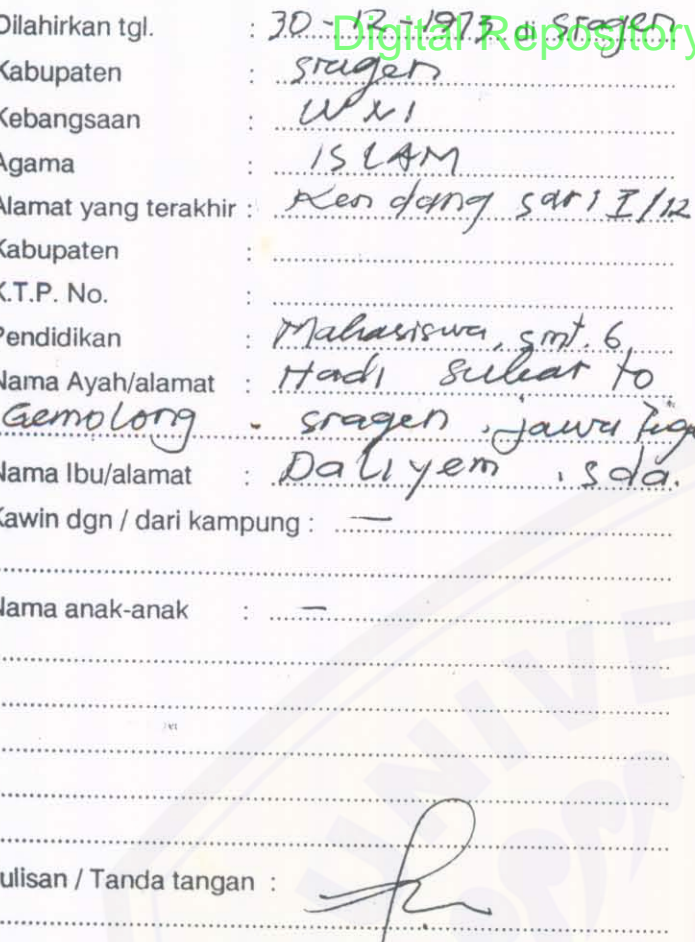 Dilahirkan tgl. : 30-12-1973 di Sragen
Digital Repository
Kabupaten : sragen
Kebangsaan : WNI
Agama : ISLAM
Alamat yang terakhir : Kendang sari I/12
Kabupaten :
K.T.P. No. :
Pendidikan : Mahasiswa, smt. 6
Nama Ayah/alamat : Hadi Suharto
Gemolong - sragen . jawa
Nama Ibu/alamat : Daliyem , sda.
Kawin dgn / dari kampung : —
Nama anak-anak : —
Tulisan / Tanda tangan :
UNIVE